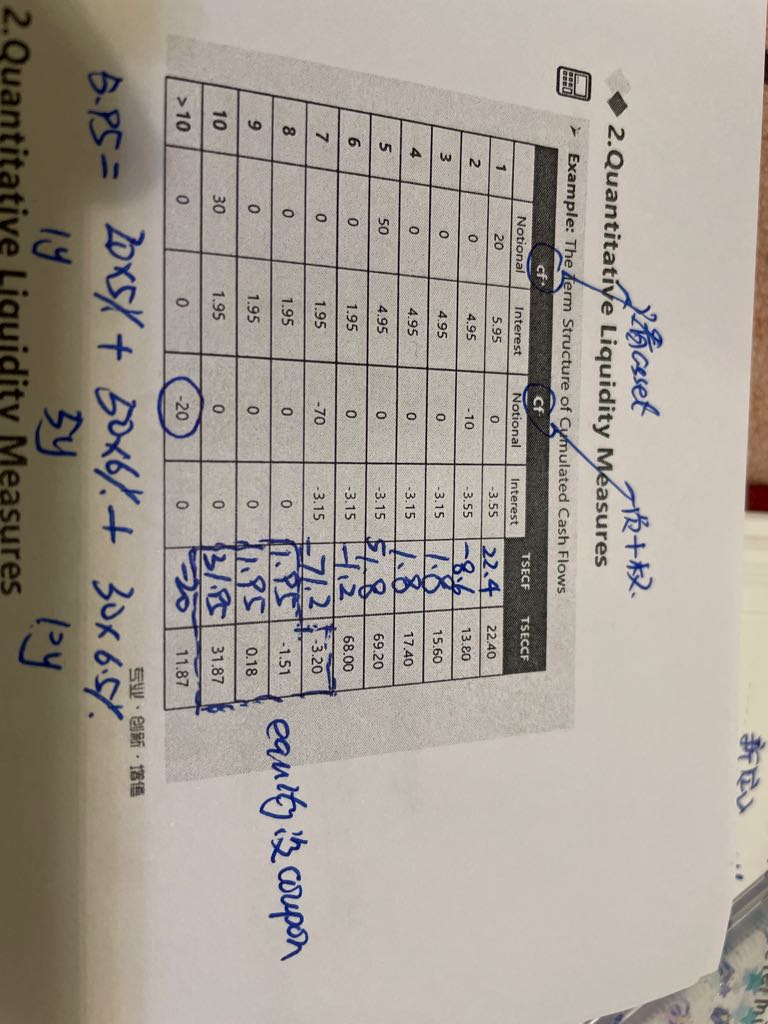 2.Quantitative Liquidity Measures
Example: The Term Structure of Cumulated Cash Flows
asset
cf+ cf-
Notional Interest Notional Interest TSECF TSECCF
1 20 5.95 0 -3.55 22.4 22.40
2 0 4.95 -10 -3.55 -8.6 13.80
3 0 4.95 0 -3.15 1.8 15.60
4 0 4.95 0 -3.15 1.8 17.40
5 50 4.95 0 -3.15 51.8 69.20
6 0 1.95 0 -3.15 -1.2 68.00
7 0 1.95 -70 -3.15 -71.2 -3.20
8 0 1.95 0 0 1.95 -1.51
9 0 1.95 0 0 1.95 0.18
10 30 1.95 0 0 31.95 31.87
>10 0 0 -20 0 -20 11.87
equity 没 coupon
专业·创新·增值
5.95 = 20×5% + 50×6% + 30×6.5%
1y 5y 10y
2.Quantitative Liquidity Measures